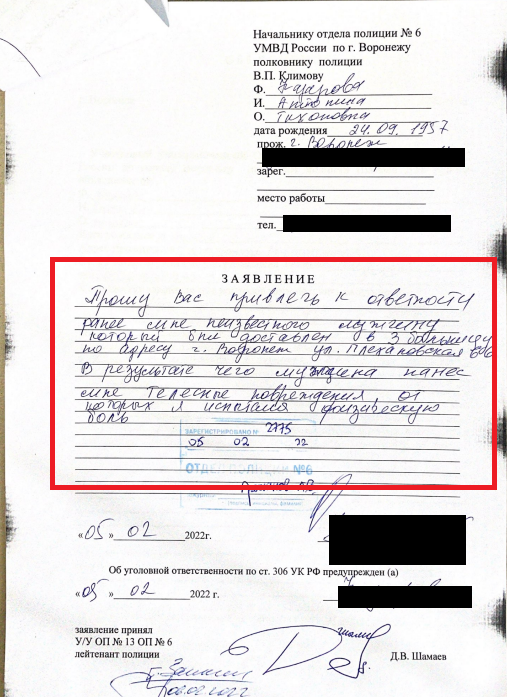 Начальнику отдела полиции № 6
УМВД России по г. Воронежу
полковнику полиции
В.П. Климову
Ф.
И. Антонина
О. Тихоновна
дата рождения 24.09.1957
прож. г. Воронеж
зарег.
место работы
тел.
ЗАЯВЛЕНИЕ
Прошу Вас привлечь к ответности
ранее мне неизвестного мужчину
который был доставлен в 3 больницу
по адресу г. Воронеж ул. Плехановская
В результате чего мужчина нанес
мне телесные повреждения, от
которых я испытала физическую
боль
ЗАРЕГИСТРИРОВАНО № 2775
05 02 22
ОТДЕЛ ПОЛИЦИИ №6
«05» 02 2022г.
Об уголовной ответственности по ст. 306 УК РФ предупрежден (а)
«05» 02 2022 г.
заявление принял
У/У ОП № 13 ОП № 6
лейтенант полиции
Д.В. Шамаев